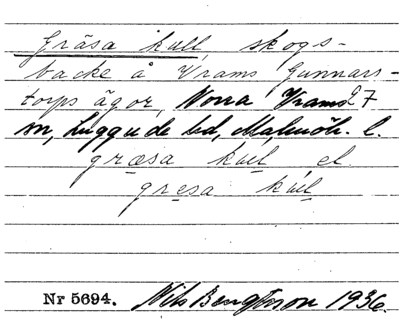 Gräsa kull, skogs-
backe å Vrams Gunnars-
torps ägor, Norra Vrams 27
sn, Luggude hd, Malmöh. l.
græsa kul el
gresa kul
Nr 5694. Nils Bengtsson 1936.